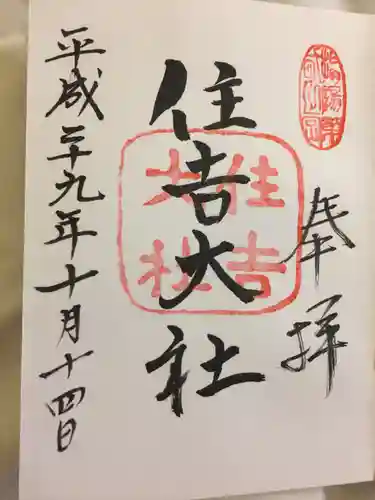 奉拝
住吉大社
住吉
大社
平成二十九年十月十四日